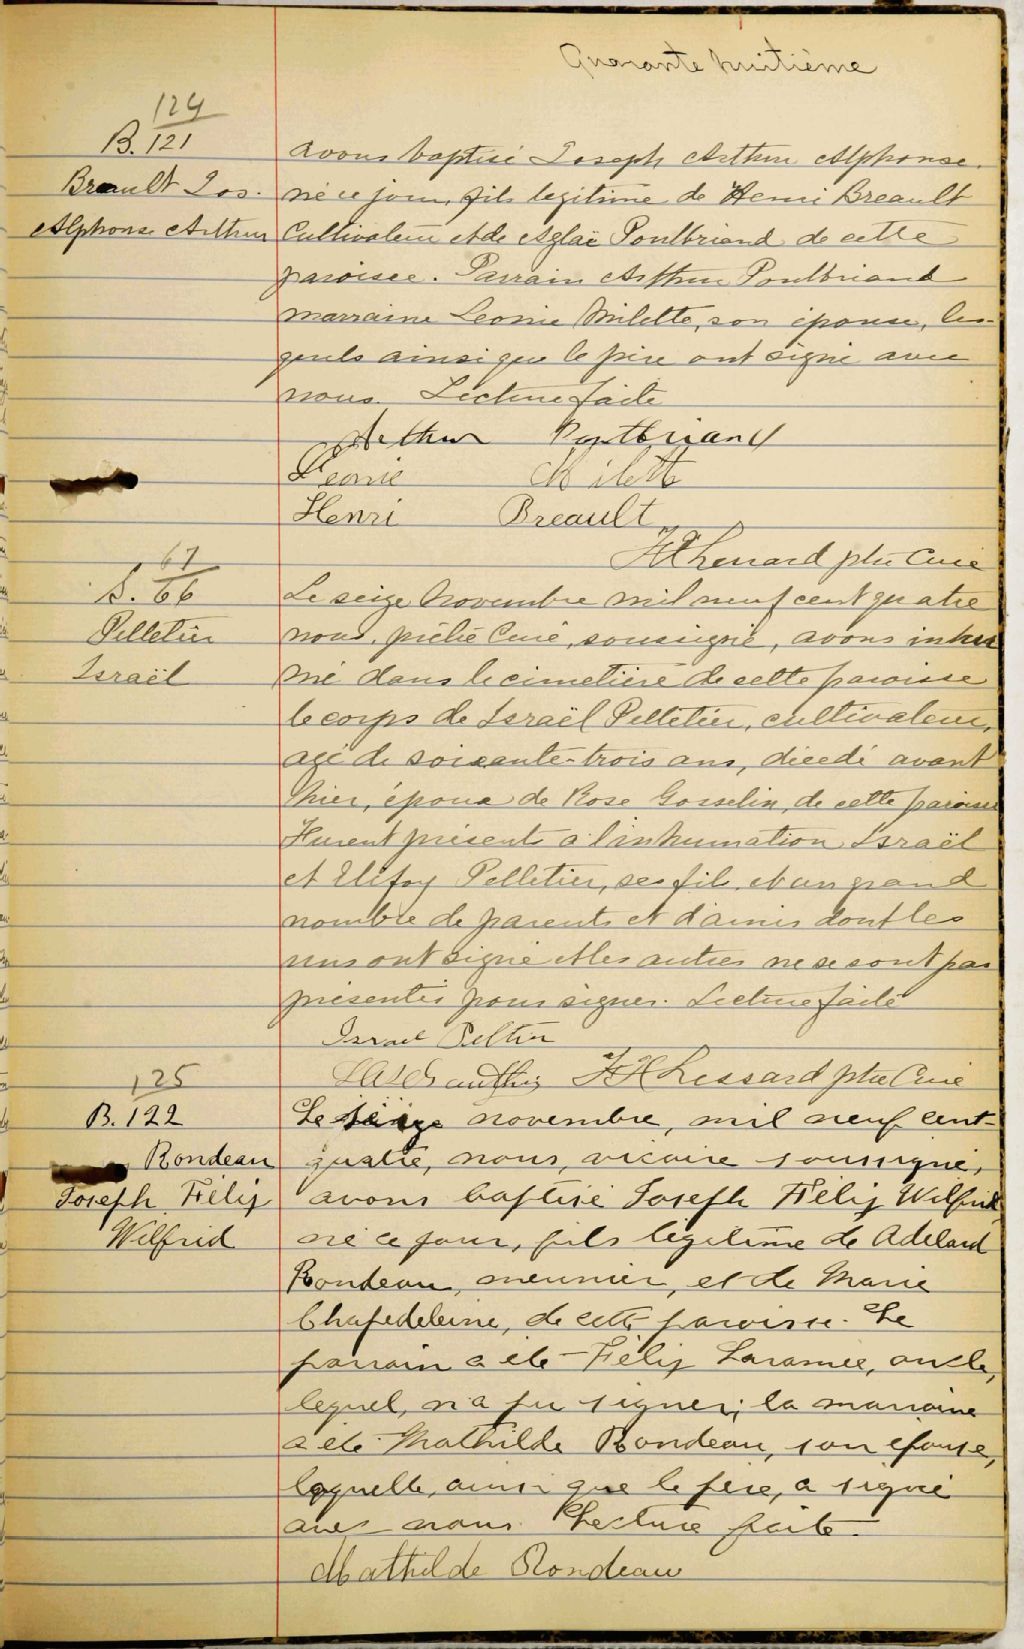 Quarante huitième
124
B. 121
Breault Jos.
Alphonse Arthur
avons baptisé Joseph Arthur Alphonse
né ce jour, fils légitime de Henri Breault
Cultivateur et de Aglaë Pontbriand de cette
paroisse. Parrain Arthur Pontbriand
marraine Leonie Milette, son épouse, les-
quels ainsi que le père ont signé avec
nous. Lecture faite
Arthur Pontbriand
Leonie Milette
Henri Breault
ptre Curé
67
S. 66
Pelletier
Israël
Le seize Novembre mil neuf cent quatre
nous, prêtre Curé, soussigné, avons inhu
mé dans le cimetière de cette paroisse
le corps de Israël Pelletier, cultivateur,
agé de soixante-trois ans, décedé avant
hier, époux de Rose Gosselin, de cette paroisse
Furent présents a l'inhumation Israël
et Pelletier, ses fils, et un grand
nombre de parents et d'amis dont les
uns ont signé et les autres ne se sont pas
présentés pour signer. Lecture faite
Israel Peltier
ptre Curé
125
B. 122
Rondeau
Joseph Félix
Wilfrid
Le seize novembre, mil neuf cent-
quatre, nous, vicaire soussigné,
avons baptisé Joseph Félix Wilfrid
né ce jour, fils légitime de Adelard
Rondeau, meunier, et de Marie
Chapedeleine, de cette paroisse. Le
parrain a été Félix Laramée, oncle,
lequel, n'a pu signer; la marraine
a été Mathilde Rondeau, son épouse,
laquelle, ainsi que le père, a signé
avec nous. Lecture faite.
Mathilde Rondeau